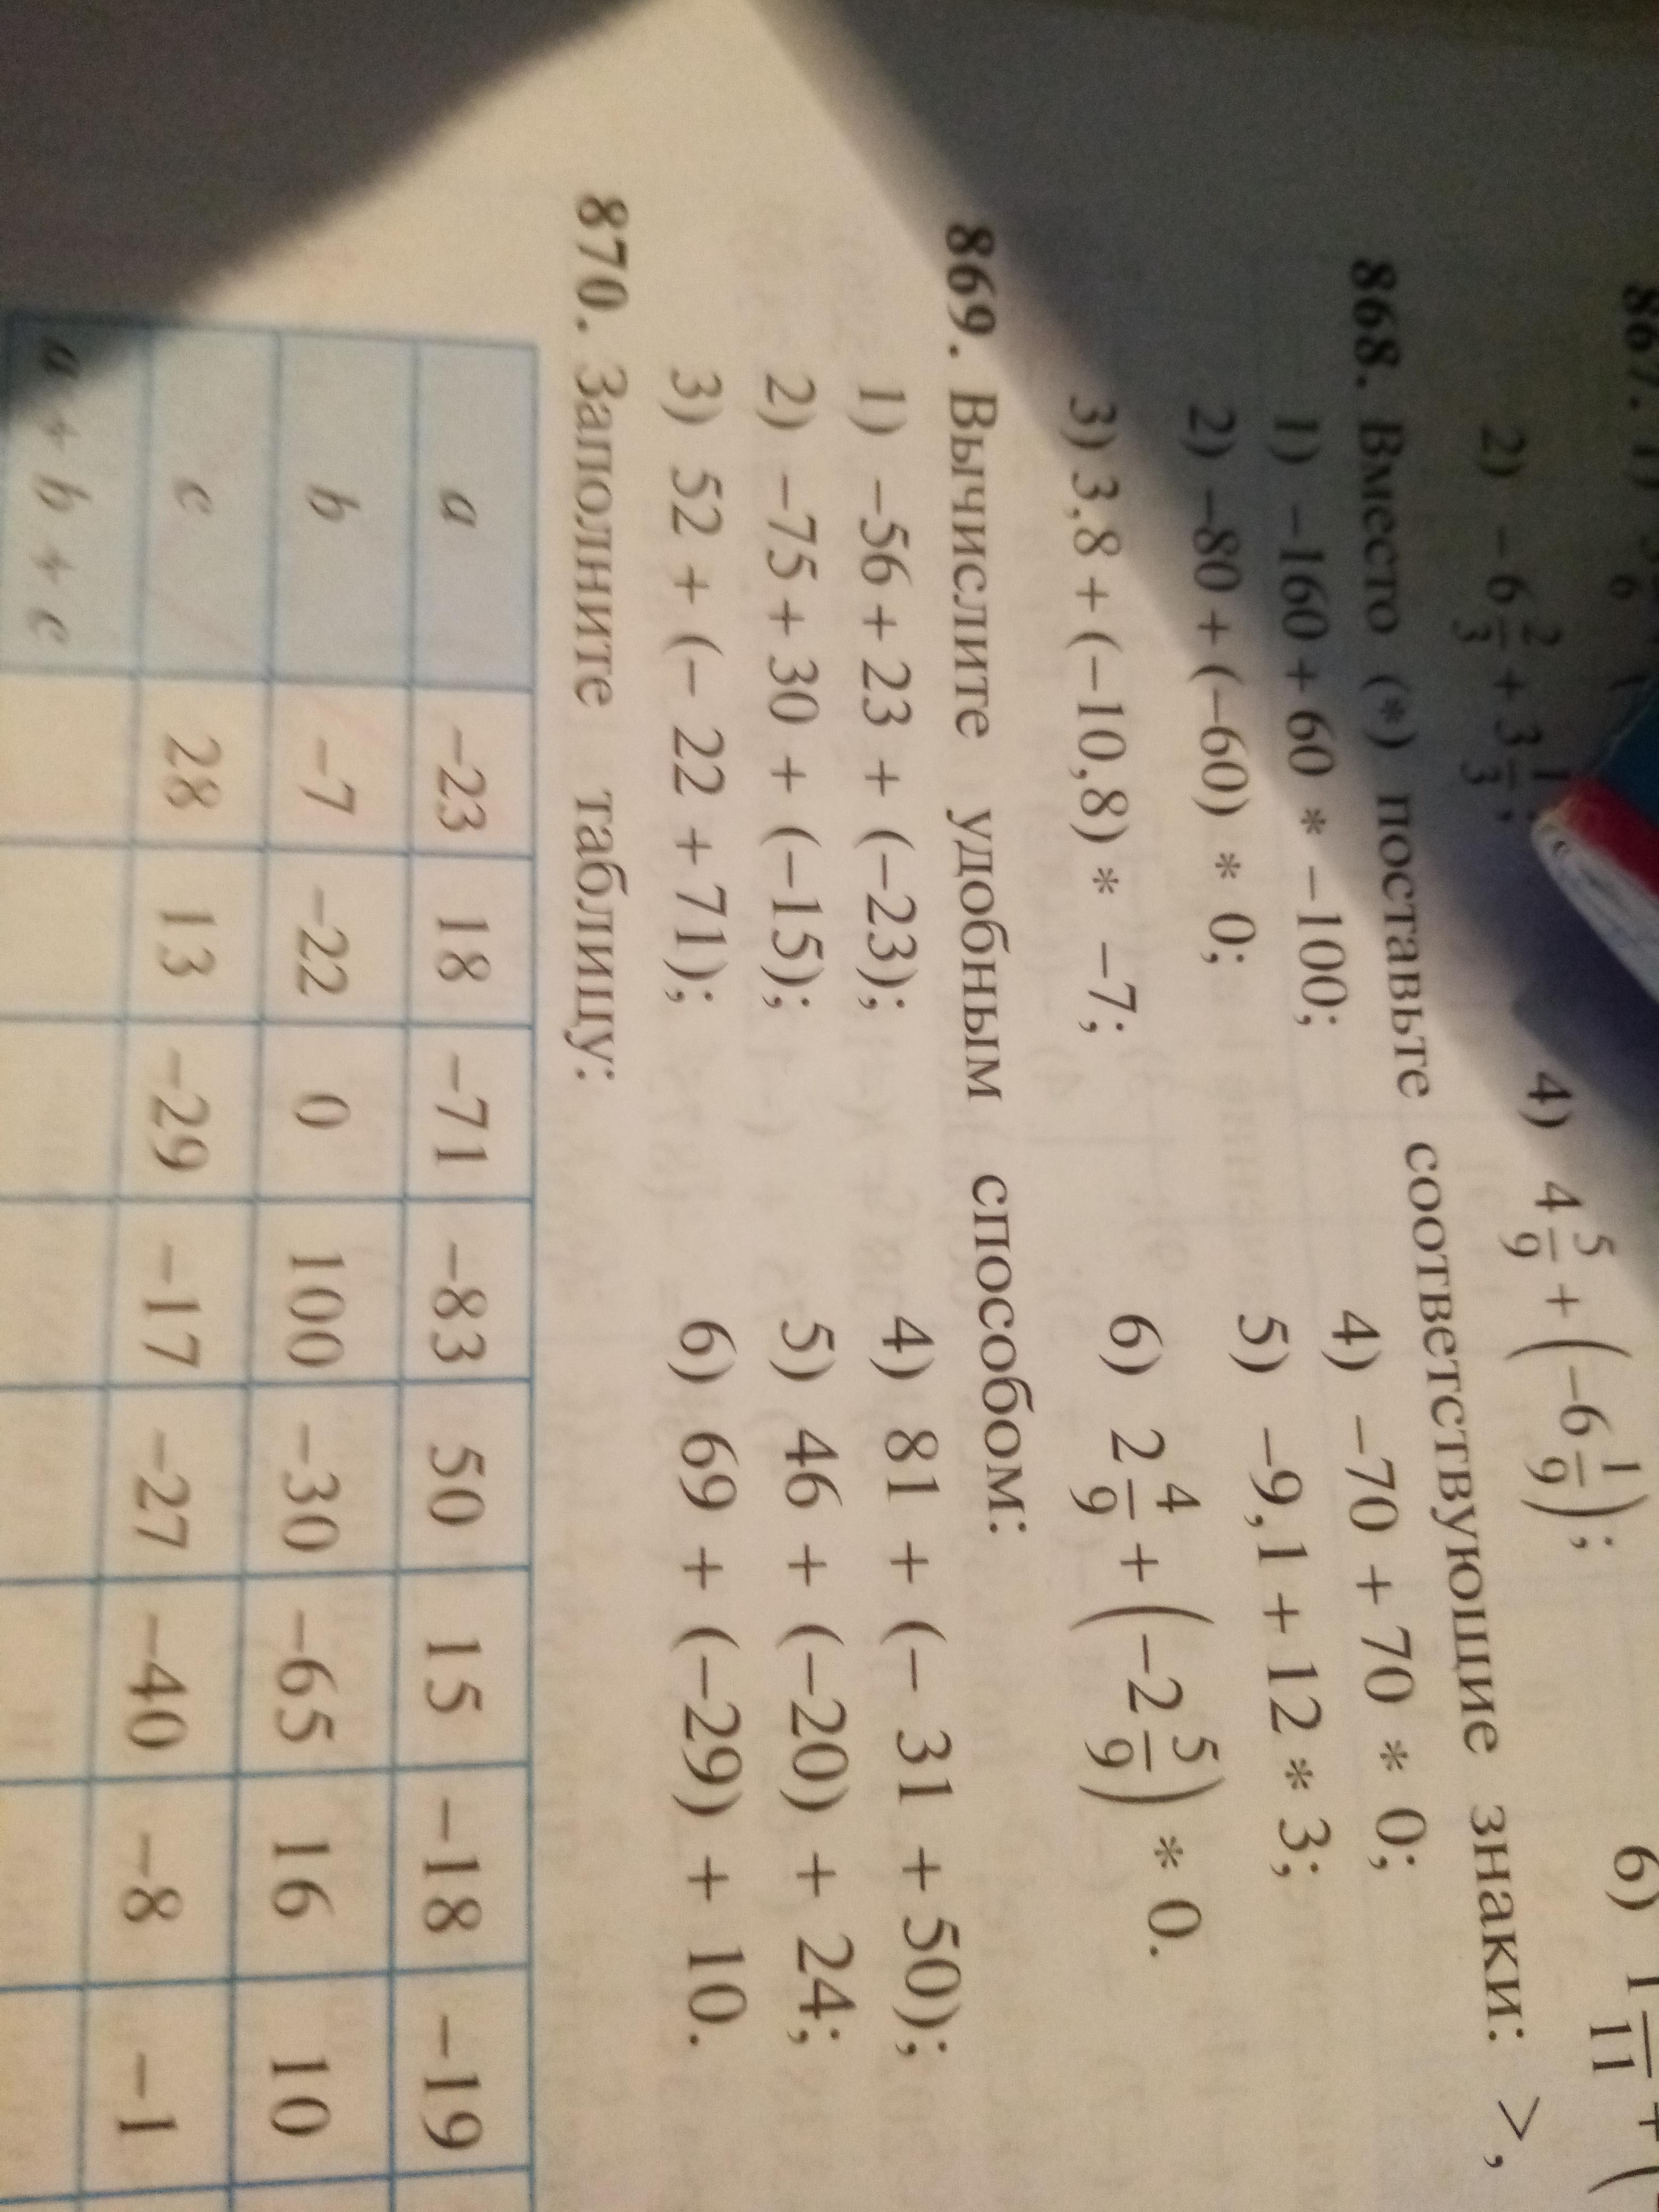 867. 1)
2) −6 2/3 + 3 1/3; 4) 4 5/9 + (−6 1/9); 6) 1
868. Вместо (*) поставьте соответствующие знаки: >,
1) −160 + 60 * −100; 4) −70 + 70 * 0;
2) −80 + (−60) * 0; 5) −9,1 + 12 * 3;
3) 3,8 + (−10,8) * −7; 6) 2 4/9 + (−2 5/9) * 0.
869. Вычислите удобным способом:
1) −56 + 23 + (−23); 4) 81 + (− 31 + 50);
2) −75 + 30 + (−15); 5) 46 + (−20) + 24;
3) 52 + (− 22 + 71); 6) 69 + (−29) + 10.
870. Заполните таблицу:
a −23 18 −71 −83 50 15 −18 −19
b −7 −22 0 100 −30 −65 16 10
c 28 13 −29 −17 −27 −40 −8 −1
a + b + c